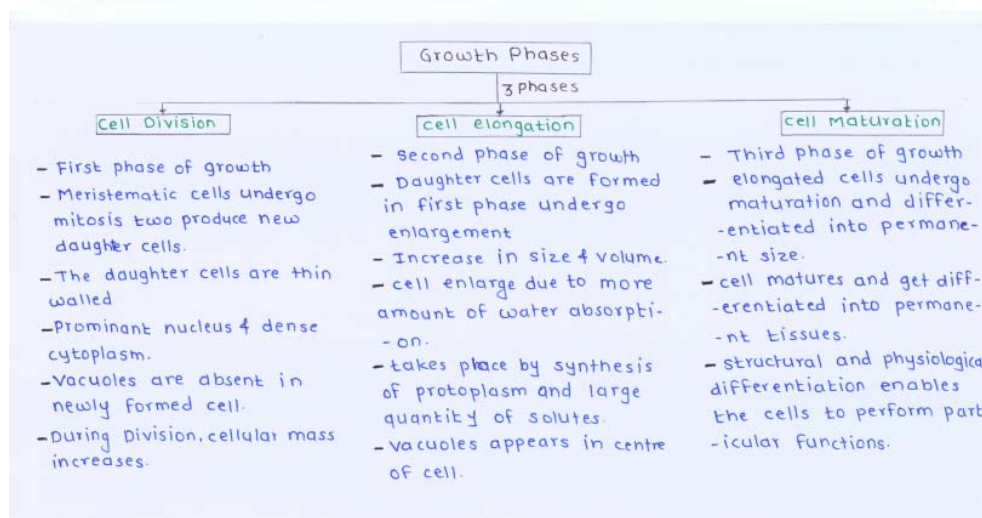 Growth Phases
3 phases
Cell Division
- First phase of growth
- Meristematic cells undergo
mitosis two produce new
daughter cells.
- The daughter cells are thin
walled
- Prominant nucleus & dense
cytoplasm.
- Vacuoles are absent in
newly formed cell.
- During Division, cellular mass
increases.
cell elongation
- second phase of growth
- Daughter cells are formed
in first phase undergo
enlargement
- Increase in size & volume.
- cell enlarge due to more
amount of water absorpti-
-on.
- takes place by synthesis
of protoplasm and large
quantity of solutes.
- vacuoles appears in centre
of cell.
cell maturation
- Third phase of growth
- elongated cells undergo
maturation and differ-
-entiated into permane-
-nt size.
- cell matures and get diff-
-erentiated into permane-
-nt tissues.
- structural and physiologica
differentiation enables
the cells to perform part
-icular functions.